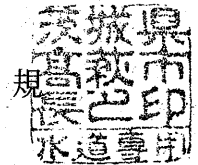 規
茨城県
高萩市
長之印
水道専用